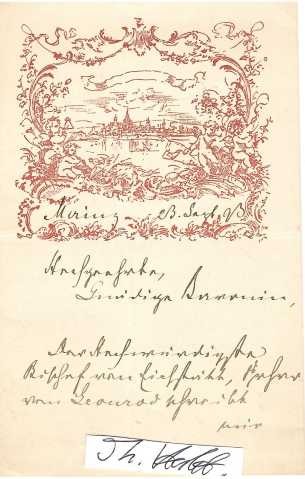 Mainz 23. Sept. 93
Hochgeehrte,
Gnädige Baronin,
Der Hochwürdigste
Bischof von Eichstätt, Frhr
von Leonrod schreibt
mir
Th.